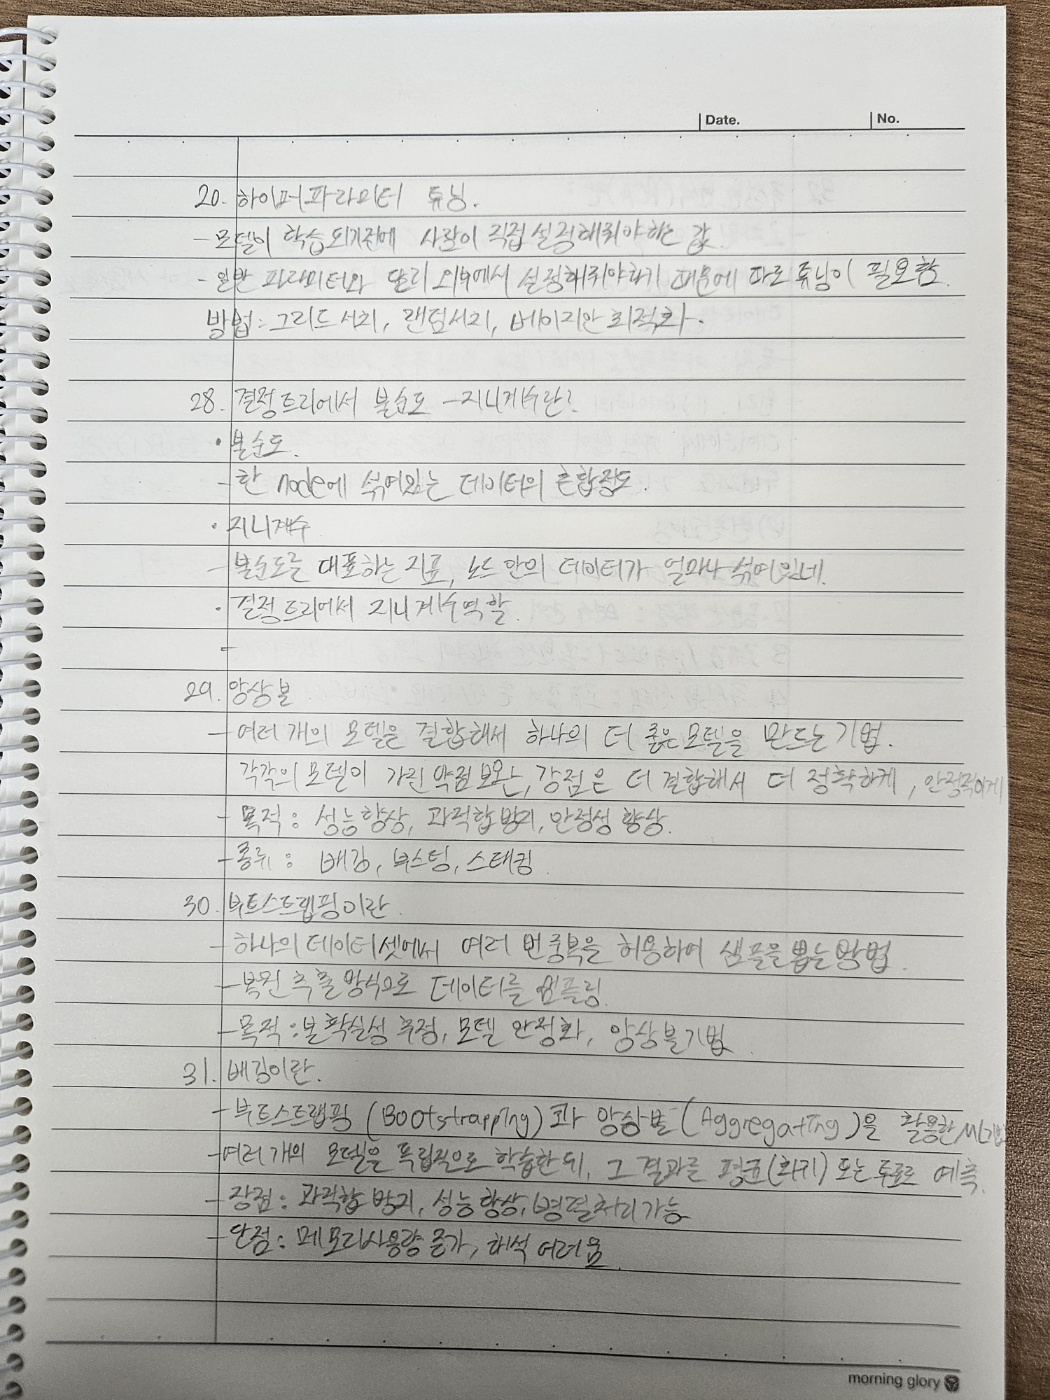 Date.
No.
20. 하이퍼파라미터 튜닝.
- 모델이 학습되기전에 사람이 직접 설정해줘야하는 값.
- 일반 파라미터와 달리 외부에서 설정해줘야하기 때문에 따로 튜닝이 필요함.
방법 : 그리드서치, 랜덤서치, 베이지안 최적화.
28. 결정트리에서 불순도 - 지니계수란?
• 불순도.
- 한 node에 섞여있는 데이터의 혼합정도.
• 지니계수
- 불순도를 대표하는 지표, 노드 안의 데이터가 얼마나 섞여있네.
• 결정트리에서 지니계수역할.
-
29. 앙상블
- 여러 개의 모델을 결합해서 하나의 더 좋은 모델을 만드는 기법.
각각의 모델이 가진 약점 보완, 강점은 더 결합해서 더 정확하게, 안정적이게
- 목적 : 성능향상, 과적합방지, 안정성 향상.
- 종류 : 배깅, 부스팅, 스태킹
30. 부트스트랩핑이란.
- 하나의 데이터셋에서 여러 번 중복을 허용하여 샘플을 뽑는 방법.
- 복원 추출 방식으로 데이터를 샘플링.
- 목적 : 불확실성 추정, 모델 안정화, 앙상블기법
31. 배깅이란.
- 부트스트랩핑 (Bootstrapping)과 앙상블 (Aggregating)을 활용한 ML기법
- 여러개의 모델을 독립적으로 학습한 뒤, 그 결과를 평균(회귀) 또는 투표로 예측.
- 장점 : 과적합 방지, 성능향상, 병렬처리가능
- 단점 : 메모리사용량 증가, 해석 어려움.
morning glory